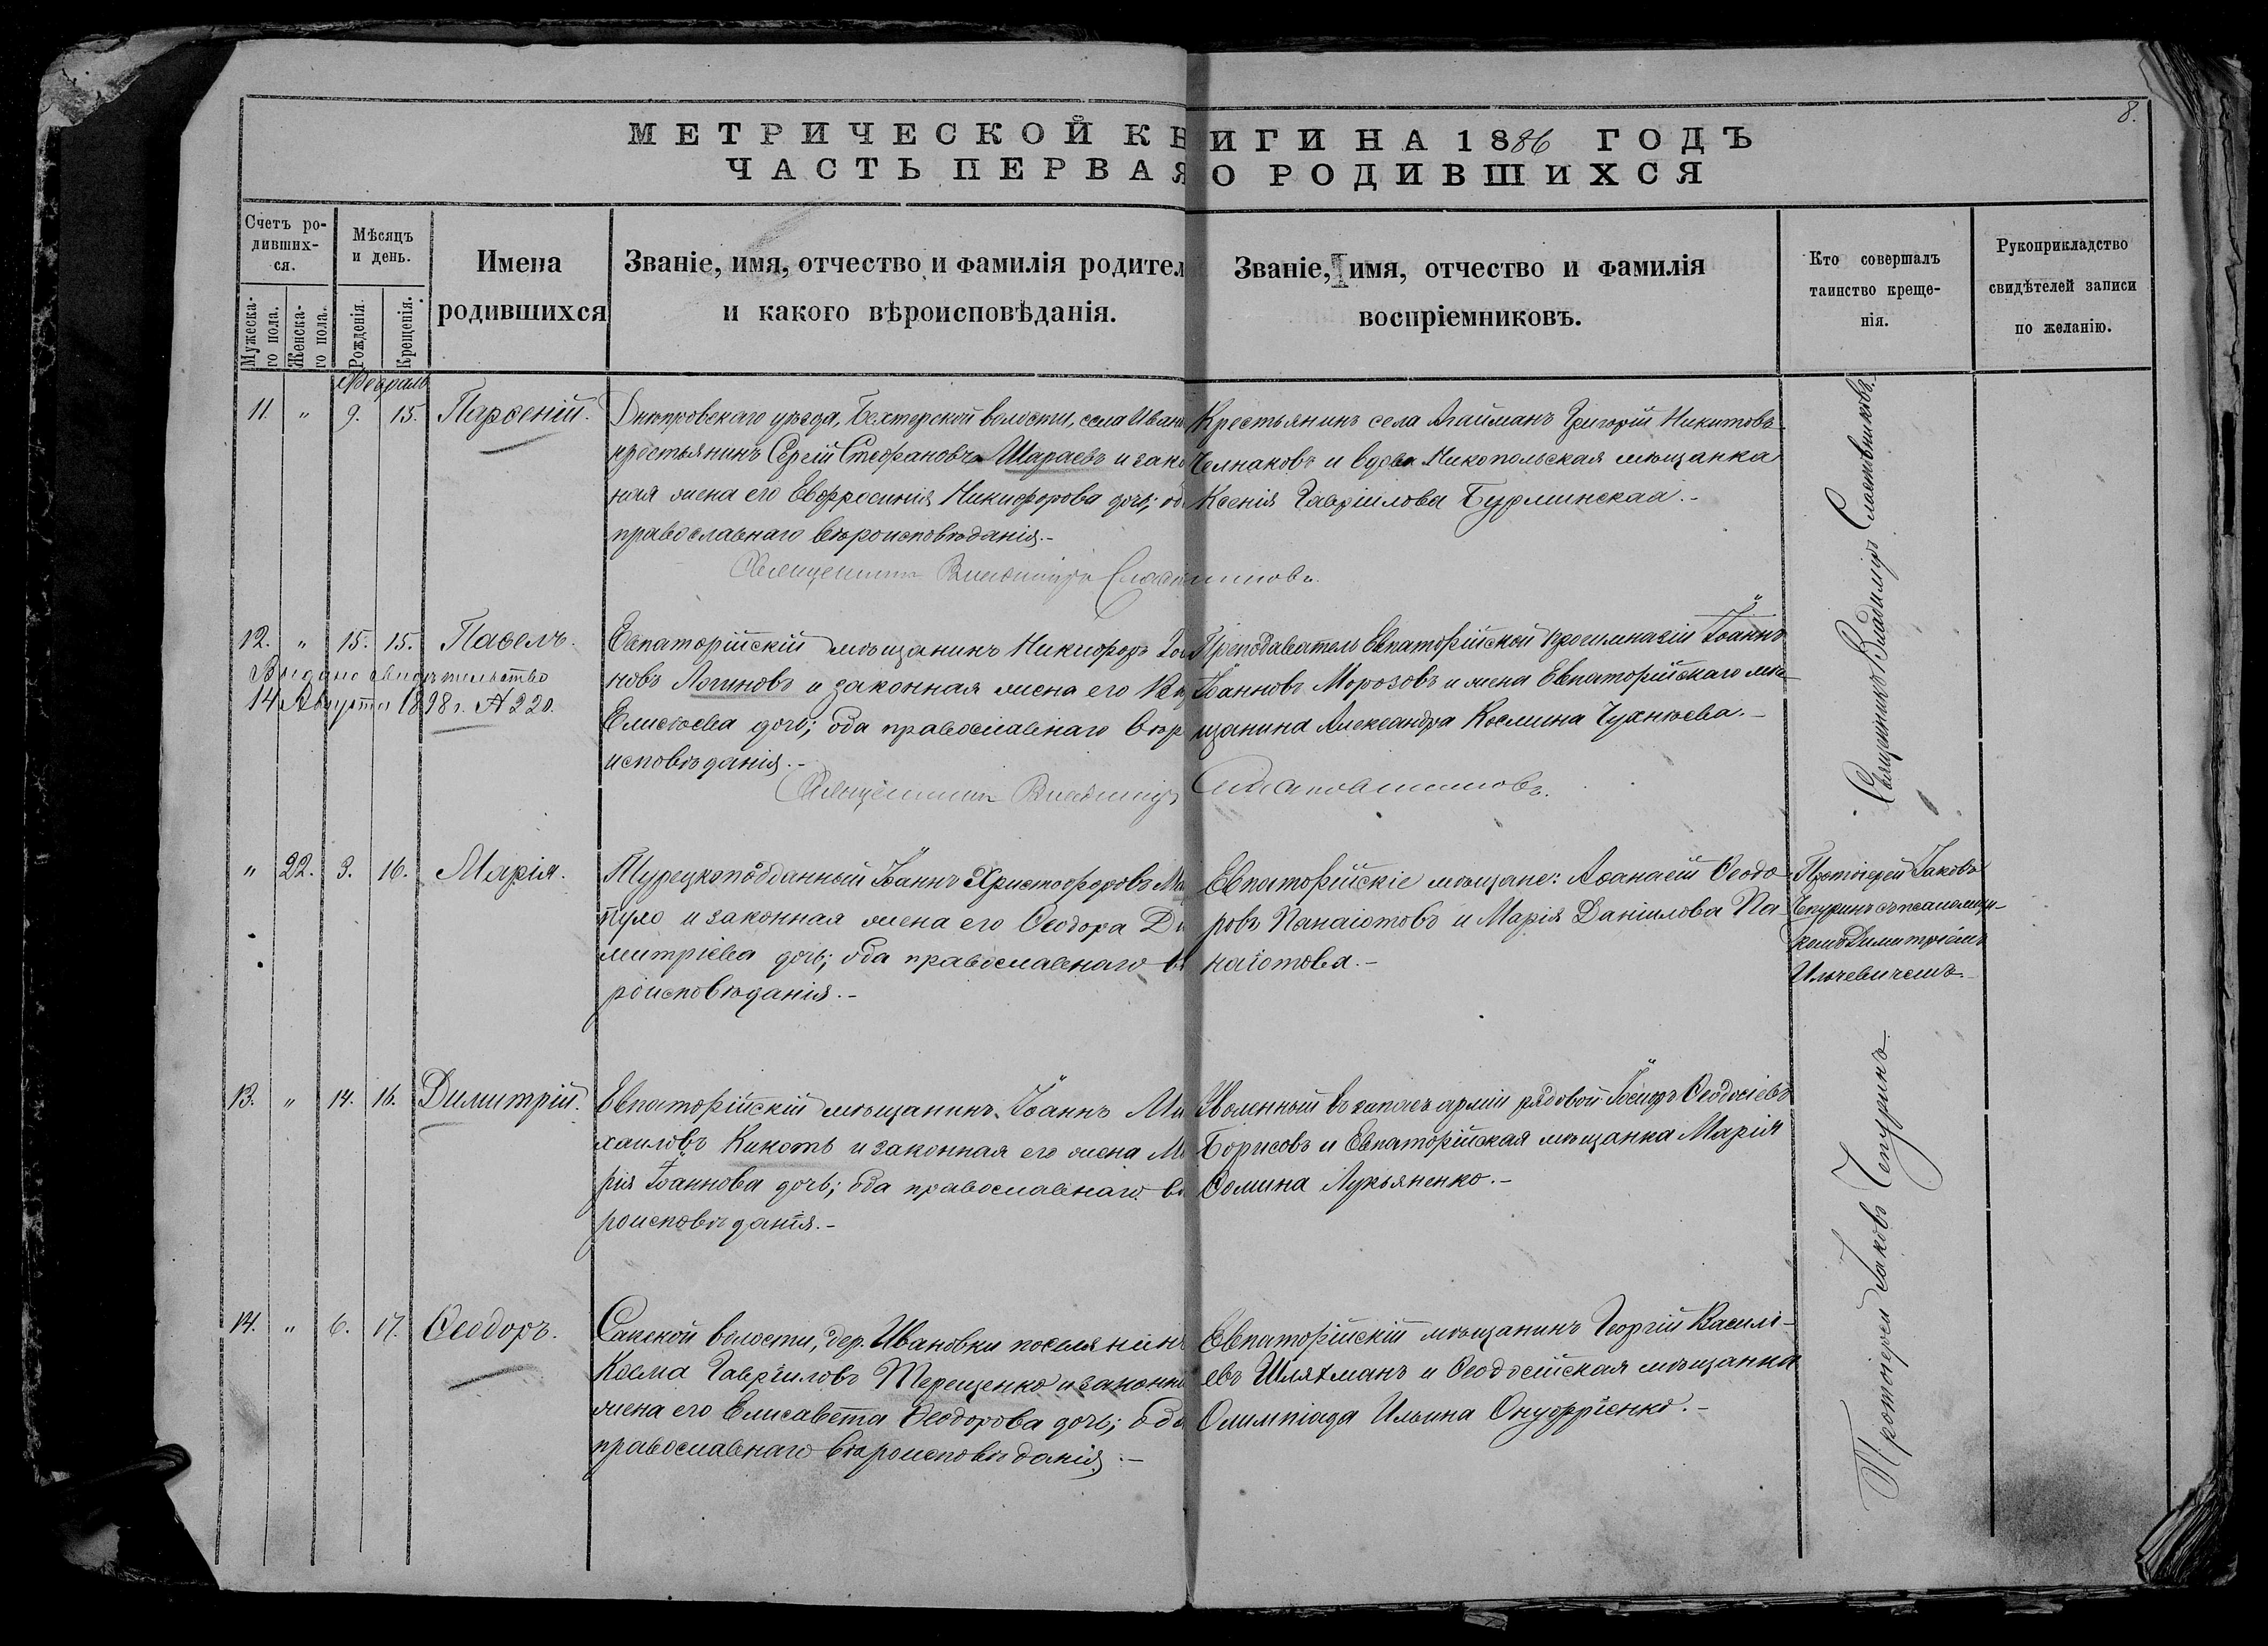 8.
МЕТРИЧЕСКОЙ КНИГИ НА 1886 ГОДЪ
ЧАСТЬ ПЕРВАЯ О РОДИВШИХСЯ
Счетъ ро-
дивших-
ся.
Мужеска-
го пола.
Женска-
го пола.
Мѣсяцъ
и день.
Рожденія.
Крещенія.
Имена
родившихся
Званіе, имя, отчество и фамилія родител
и какого вѣроисповѣданія.
Званіе, имя, отчество и фамилія
воспріемниковъ.
Кто совершалъ
таинство креще-
нія.
Рукоприкладство
свидѣтелей записи
по желанію.
Февраль
11. " 9. 15. Парѳеній.
Днѣпровскаго уѣзда, Бехтерской волости, села Иван
крестьянинъ Сергій Стефановъ Шараевъ и зако
ная жена его Евфросинія Никифорова дочь; об
православнаго вѣроисповѣданія.-
Крестьянинъ села Агайманъ Григорій Никитовъ
Челнаковъ и вдова Никопольская мѣщанка
Ксенія Гавріилова Бурминская.-
Священникъ Владиміръ Сластниковъ.
12. " 15. 15. Павелъ.
Видано свидѣтельство
14 Августа 1898 г. № 220.
Евпаторійскій мѣщанинъ Никифоръ Іоа
новъ Логиновъ и законная жена его
Елисѣева дочь; оба православнаго вѣр
исповѣданія.-
Преподаватель Евпаторійской прогимназіи Іоаннъ
Іоанновъ Морозовъ и жена Евпаторійскаго мѣ-
щанина Александра Космина Чухнѣева.-
Священникъ Владиміръ Сластниковъ.
Священникъ Владиміръ Сластниковъ.
" 22. 3. 16. Марія.
Турецкоподданный Іоаннъ Христофоровъ Ма
пуло и законная жена его Ѳеодора Ди
митріева дочь; оба православнаго вѣ
роисповѣданія.-
Евпаторійскіе мѣщане: Аѳанасій Ѳеодо-
ровъ Панаіотовъ и Марія Даніилова Па-
наіотова.-
Протоіерей Іаковъ
Чепуринъ съ псаломщи-
комъ Димитріемъ
Ильчевичемъ.
13. " 14. 16. Димитрій.
Евпаторійскій мѣщанинъ Іоаннъ Ми
хаиловъ Кикоть и законная его жена Ма
рія Іоаннова дочь; оба православнаго вѣ
роисповѣданія.-
Уволенный въ запасъ арміи рядовой Іосифъ Ѳеодосіевъ
Борисовъ и Евпаторійская мѣщанка Марія
Ѳомина Лукьяненко.-
14. " 6. 17. Ѳеодоръ.
Сакской волости, дер. Ивановки поселянинъ
Косма Гавріиловъ Терещенко и законна
жена его Елисавета Ѳеодорова дочь; оба
православнаго вѣроисповѣданія.-
Евпаторійскій мѣщанинъ Георгій Василі-
евъ Шляхманъ и Ѳеодосійская мѣщанка
Олимпіада Ильина Онуфріенко.-
Протоіерей Іаковъ Чепуринъ.